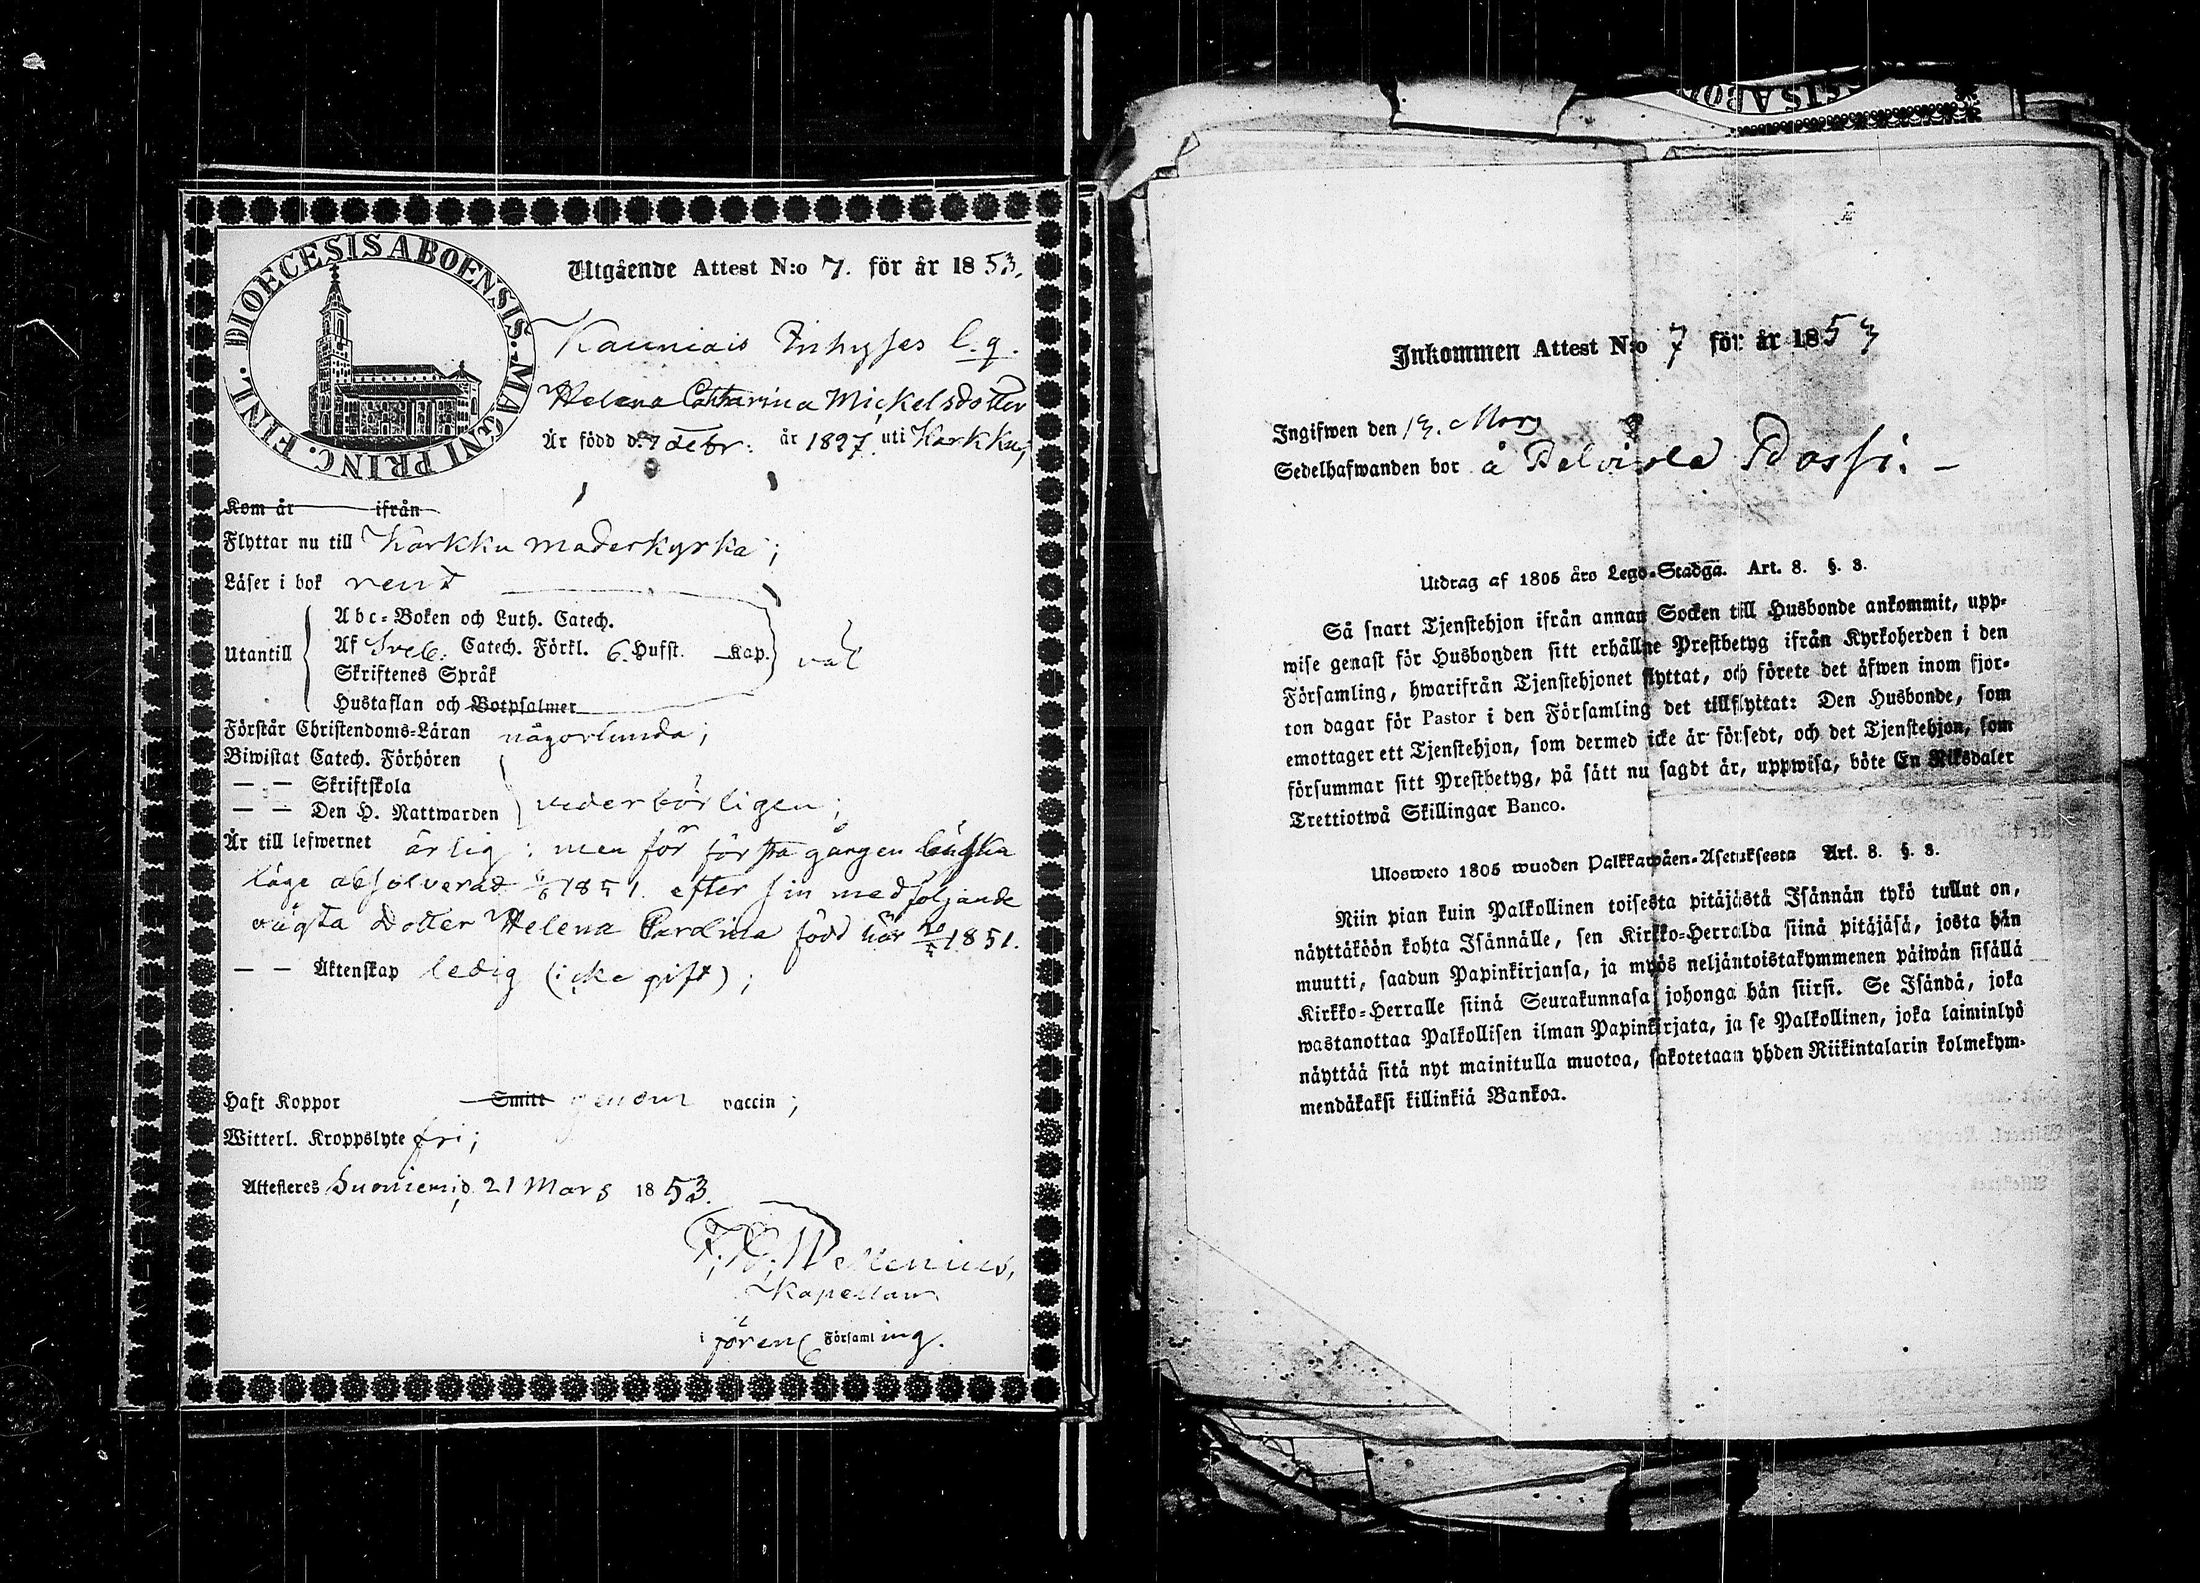 DIOECESIS ABOENSIS. MAGNI PRINC. FINL.
Utgående Attest N:o 7. för år 1853.
Kauniais Inhyses l.q.
Helena Catharina Mickelsdotter
Är född d. 7 debr: år 1827 uti Karkku;
Kom år ifrån
Flyttar nu till Karkku moderkyrka;
Läser i bok rent
Utantill
Abc-Boken och Luth. Catech.
Af Sveb. Catech. Förkl. 6. Hufst. Kap.
Skriftenes Språk
Hustaflan och Botpsalmer
väl
Förstår Christendoms-Läran någorlunda;
Biwistat Catech. Förhören
— — Skriftskola
— — Den H. Nattwarden
vederbörligen;
Är till lefwernet ärlig; men för första gången lönska
läge absolverad 1851. efter sin medföljande
oägta Dotter Helena Carolina född här 1851.
— — Äktenskap ledig (icke gift);
Haft Koppor Smitt genom vaccin;
Witterl. Kroppslyte fri;
Attesteres Suoniemi d. 21 Mars 1853.
Wellenius,
Kapellan
i Församling.
CISABO
Inkommen Attest N:o 7 för år 1853
Ingifwen den 13. Mars
Sedelhafwanden bor å Pass
Utdrag af 1805 års Lego-Stadga. Art. 8. §. 3.
Så snart Tjenstehjon ifrån annan Socken till Husbonde ankommit, upp-
wise genast för Husbonden sitt erhållne Prestbetyg ifrån Kyrkoherden i den
Församling, hwarifrån Tjenstehjonet flyttat, och förete det äfwen inom fjor-
ton dagar för Pastor i den Församling det tillflyttat: Den Husbonde, som
emottager ett Tjenstehjon, som dermed icke är försedt, och det Tjenstehjon, som
försummar sitt Prestbetyg, på sätt nu sagdt är, uppwisa, böte En Riksdaler
Trettiotwå Skillingar Banco.
Ulosweto 1805 wuoden Palkkawäen-Asetuksesta Art. 8. §. 3.
Niin pian kuin Palkollinen toisesta pitäjästä Isännän tykö tullut on,
näyttäköön kohta Isännälle, sen Kirkko-Herralda siinä pitäjäsä, josta hän
muutti, saadun Papinkirjansa, ja myös neljäntoistakymmenen päiwän sisällä
Kirkko-Herralle siinä Seurakunnasa johonga hän siirsi. Se Isändä, joka
wastanottaa Palkollisen ilman Papinkirjata, ja se Palkollinen, joka laiminlyö
näyttää sitä nyt mainitulla muotoa, sakotetaan yhden Riikintalarin kolmekym-
mendäkaksi killinkiä Bankoa.